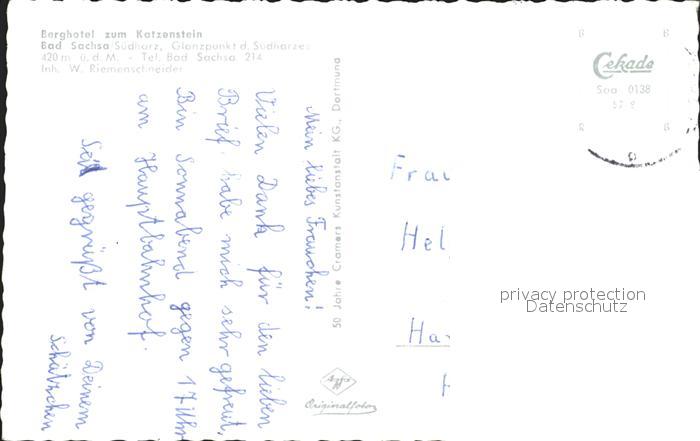 Berghotel zum Katzenstein
Bad Sachsa Südharz, Glanzpunkt d. Südharzes
420 m ü. d. M. - Tel. Bad Sachsa 214
Inh. W. Riemenschneider
Mein liebes Frauchen!
Vielen Dank für den lieben
Brief. habe mich sehr gefreut,
Bin Sonnabend gegen 17 Uhr
am Hauptbahnhof.
Sei gegrüßt von Deinem
Schätzchen
50 Jahre Cramers Kunstanstalt KG., Dortmund
Cekade
Soa 0138
Frau
Hel
Ha
privacy protection
Datenschutz
Agfa
Originalfoto